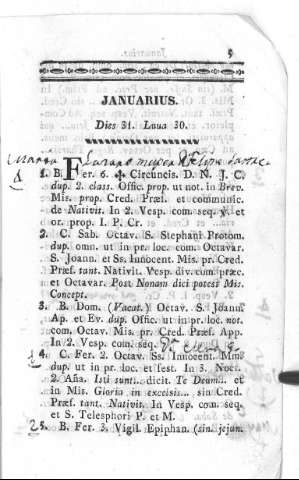 5
JANUARIUS.
Dies 31. Luna 30.
1. B. Fer. 6. ✠ Circuncis. D. N. J. C.
dup. 2. class. Offic. prop. ut not. in Brev.
Mis. prop. Cred. Præf. et communic.
de Nativit. In 2. Vesp. com. seq. ℣. et
or. prop. I. P. Cr.
2. C. Sab. Octav. S. Stephani Protom.
dup. omn. ut in pr. loc. com. Octavar.
S. Joann. et Ss. Innocent. Mis. pr. Cred.
Præf. tant. Nativit. Vesp. div. com. præc.
et Octavar. Post Nonam dici potest Mis.
Concept.
3. B. Dom. (Vacat.) Octav. S. Joann.
Ap. et Ev. dup. Offic. ut in pr. loc. not.
com. Octav. Mis. pr. Cred. Præf. App.
In 2. Vesp. com. seq.
4. C. Fer. 2. Octav. Ss. Innocent. Mm.
dup. ut in pr. loc. et fest. In 3. Noct.
2. Aña. Isti sunt... dicit. Te Deum.. et
in Mis. Gloria in excelsis... sin Cred.
Præf. tant. Nativit. In Vesp. com. seq.
et S. Telesphori P. et M.
5. B. Fer. 3. Vigil. Epiphan. (sin. jejun.